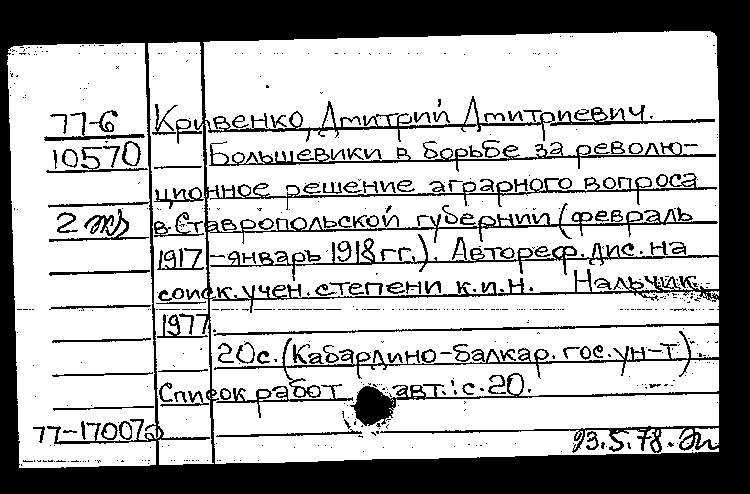 77-6 Кривенко, Дмитрий Дмитриевич.
10570 Большевики в борьбе за револю-
ционное решение аграрного вопроса
2 экз в Ставропольской губернии (февраль
1917-январь 1918 гг.). Автореф. дис. на
соиск. учен. степени к.и.н. Нальчик,
1977.
20с. (Кабардино-Балкар. гос. ун-т).
Список работ авт.: с. 20.
77-17007
23.5.78.